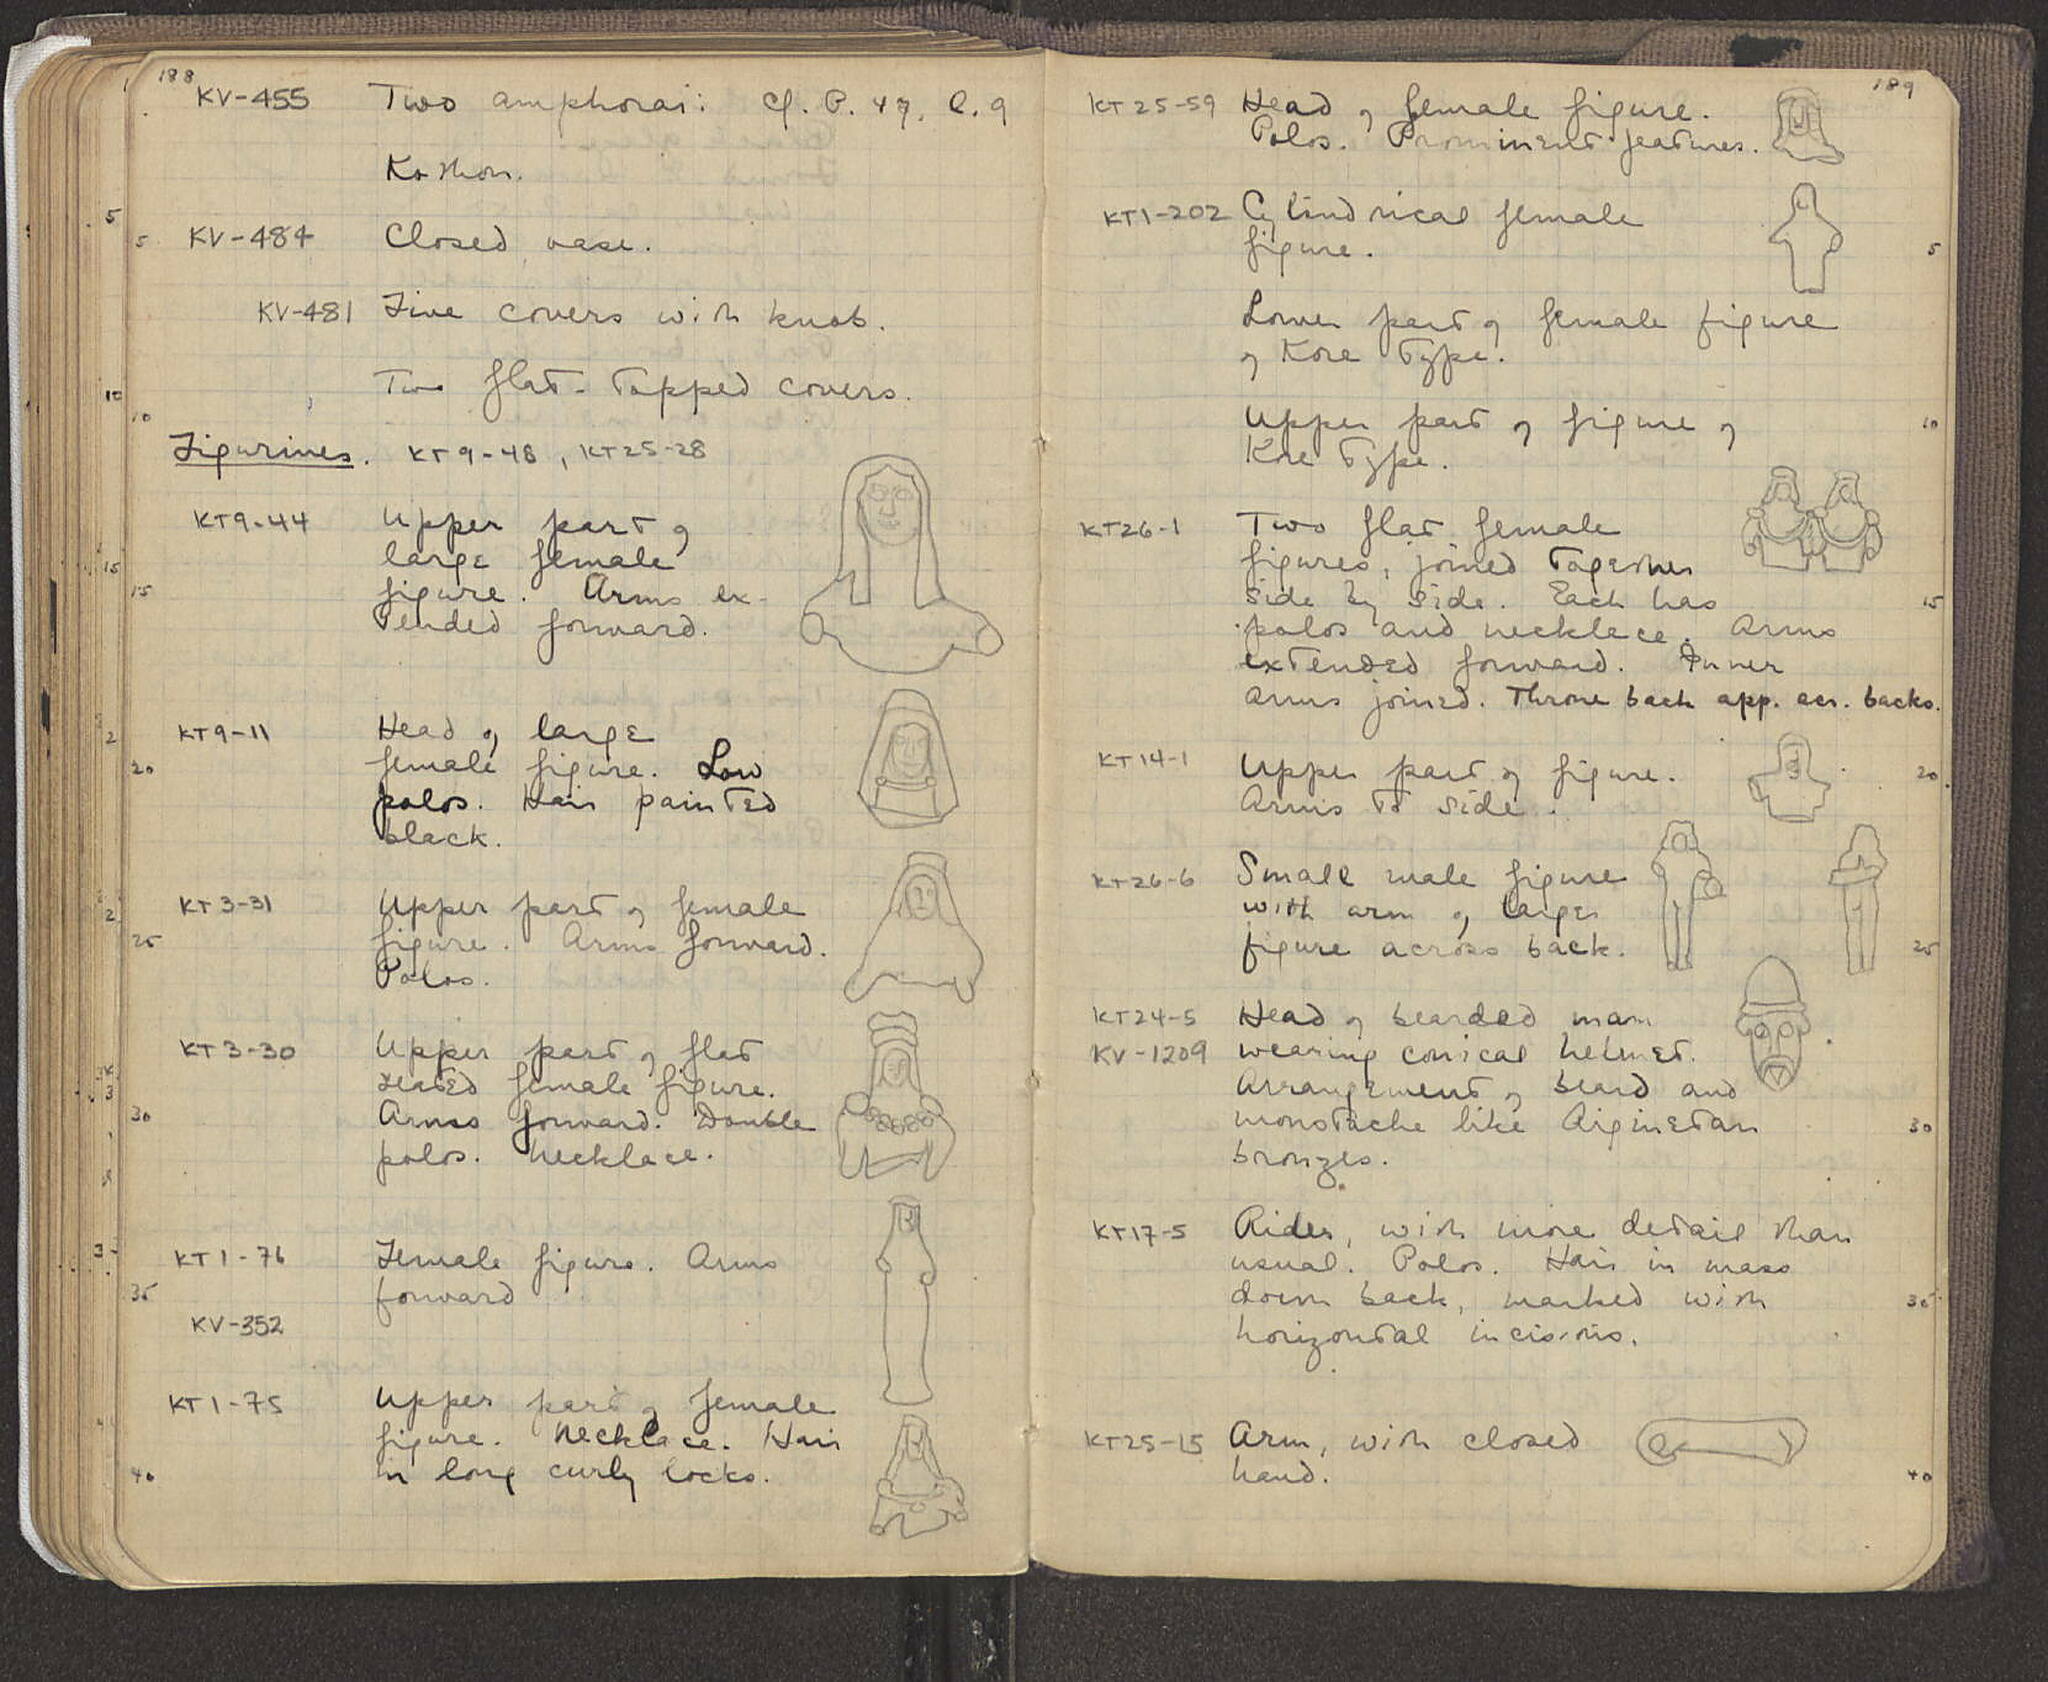 188
KV-455 Two amphorai: cf. P. 47, l. 9
Kothon.
5 KV-484 Closed vase.
KV-481 Five covers with knob.
Two flat-topped covers.
10
Figurines. KT9-48, KT25-28
KT9-44 Upper part of
large female
15 figure. Arms ex-
tended forward.
KT9-11 Head of large
20 female figure. Low
polos. Hair painted
black.
KT3-31 Upper part of female
25 figure. Arms forward.
Polos.
KT3-30 Upper part of flat
seated female figure.
30 Arms forward. Double
polos. Necklace.
KT1-76 Female figure. Arms
35 forward
KV-352
KT1-75 Upper part of female
figure. Necklace. Hair
40 in long curly locks.
189
KT25-59 Head of female figure.
Polos. Prominent features.
KT1-202 Cylindrical female
figure. 5
Lower part of female figure
of Kore type.
Upper part of figure of 10
Kore type.
KT26-1 Two flat female
figures, joined together
side by side. Each has 15
polos and necklace. Arms
extended forward. Inner
arms joined. Throne back app. acr. backs.
KT14-1 Upper part of figure. 20
Arms to side.
KT26-6 Small male figure
with arm of larger
figure across back. 25
KT24-5 Head of bearded man
KV-1209 wearing conical helmet.
Arrangement of beard and
moustache like Aiginetan 30
bronzes.
KT17-5 Rider, with more detail than
usual. Polos. Hair in mass
down back, marked with 35
horizontal incisions.
KT25-15 Arm, with closed
hand. 40